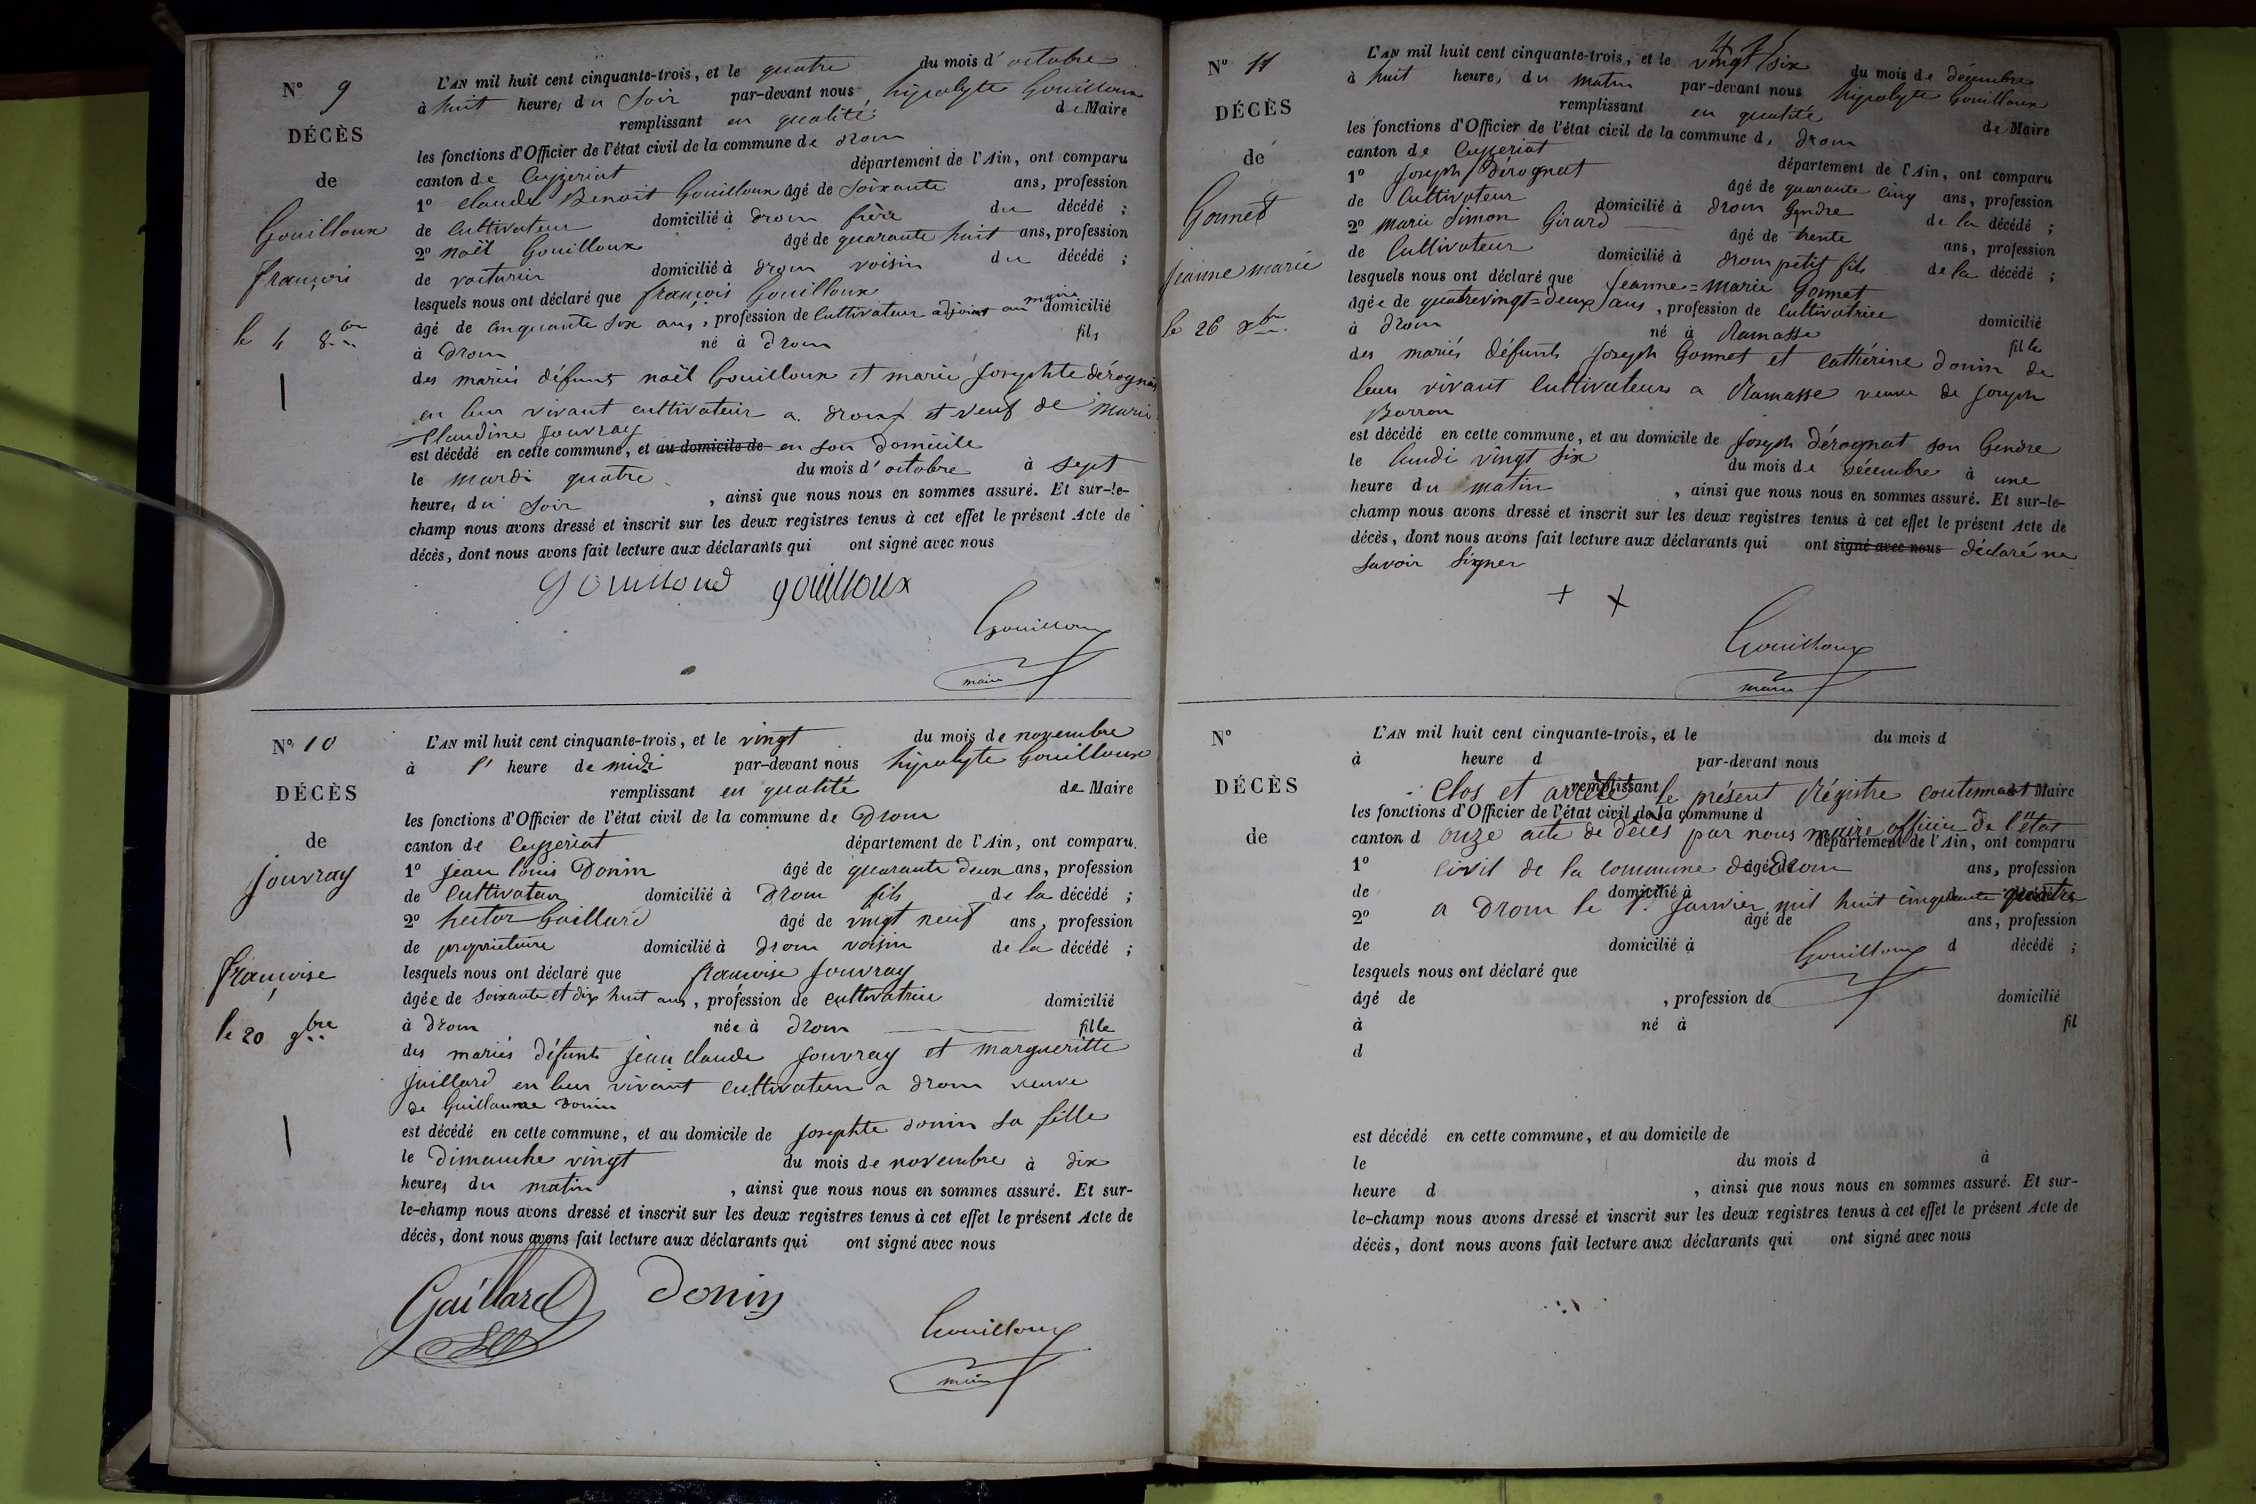 N° 9
DÉCÈS
de
Gouilloux
françois
le 4 8bre
L'AN mil huit cent cinquante-trois, et le quatre du mois d'octobre
à huit heures du Soir par-devant nous hipolyte Gouilloux
remplissant en qualité de Maire
les fonctions d'Officier de l'état civil de la commune de drom
canton de Ceyzeriat département de l'Ain, ont comparu
1° Claude Benoit Gouilloux âgé de Soixante ans, profession
de Cultivateur domicilié à drom frère du décédé ;
2° noël Gouilloux âgé de quarante huit ans, profession
de voiturier domicilié à drom voisin du décédé ;
lesquels nous ont déclaré que françois Gouilloux
âgé de cinquante six ans, profession de Cultivateur adjoint au maire domicilié
à drom né à drom fils
des mariés défunts noël Gouilloux et marie Josephte dérognat
en leur vivant cultivateur a drom et veuf de marie
Claudine Jouvray
est décédé en cette commune, et au domicile de en son domicile
le mardi quatre du mois d'octobre à sept
heures du soir , ainsi que nous nous en sommes assuré. Et sur-le-
champ nous avons dressé et inscrit sur les deux registres tenus à cet effet le présent Acte de
décès, dont nous avons fait lecture aux déclarants qui ont signé avec nous
Gouilloud gouilloux
Gouilloux
maire
N° 10
DÉCÈS
de
Jouvray
françoise
le 20 9bre
L'AN mil huit cent cinquante-trois, et le vingt du mois de novembre
à l' heure de midi par-devant nous hipolyte Gouilloux
remplissant en qualité de Maire
les fonctions d'Officier de l'état civil de la commune de Drom
canton de Ceyzeriat département de l'Ain, ont comparu
1° Jean louis Donin âgé de quarante deux ans, profession
de Cultivateur domicilié à Drom fils de la décédé ;
2° hector Gaillard âgé de vingt neuf ans, profession
de propriétaire domicilié à Drom voisin de la décédé ;
lesquels nous ont déclaré que françoise Jouvray
âgée de soixante et dix huit ans, profession de cultivatrice domicilié
à drom née à drom fille
des mariés défunts jean claude Jouvray et margueritte
Juillard en leur vivant cultivateur a drom veuve
de Guillaume Donin
est décédé en cette commune, et au domicile de Josephte donin sa fille
le dimanche vingt du mois de novembre à dix
heures du matin , ainsi que nous nous en sommes assuré. Et sur-
le-champ nous avons dressé et inscrit sur les deux registres tenus à cet effet le présent Acte de
décès, dont nous avons fait lecture aux déclarants qui ont signé avec nous
Gaillard Donin
Gouilloux
maire
N° 11
DÉCÈS
de
Gonnet
Jeanne marie
le 26 xbre
L'AN mil huit cent cinquante-trois, et le vingt six du mois de décembre
à huit heures du matin par-devant nous hipolyte Gouilloux
remplissant en qualité de Maire
les fonctions d'Officier de l'état civil de la commune de drom
canton de Ceyzeriat département de l'Ain, ont comparu
1° Joseph dérognat âgé de quarante cinq ans, profession
de Cultivateur domicilié à drom Gendre de la décédé ;
2° marie Simon Girard âgé de trente ans, profession
de Cultivateur domicilié à drom petit fils de la décédé ;
lesquels nous ont déclaré que Jeanne=marie Gonnet
âgée de quatrevingt=deux ans, profession de Cultivatrice domicilié
à drom né à Ramasse fille
des mariés défunts Joseph Gonnet et Cathérine donin de
leur vivant Cultivateur a Ramasse veuve de Joseph
Borron
est décédé en cette commune, et au domicile de Joseph dérognat son Gendre
le lundi vingt six du mois de décembre à une
heure du matin , ainsi que nous nous en sommes assuré. Et sur-le-
champ nous avons dressé et inscrit sur les deux registres tenus à cet effet le présent Acte de
décès, dont nous avons fait lecture aux déclarants qui ont signé avec nous déclaré ne
savoir signer
+ x
Gouilloux
maire
N°
DÉCÈS
de
L'AN mil huit cent cinquante-trois, et le du mois d
à heure d par-devant nous
remplissant de Maire
Clos et arrêté le présent Régistre contenant
les fonctions d'Officier de l'état civil de la commune d
canton d département de l'Ain, ont comparu
onze acte de décès par nous maire officier de l'état
1° âgé de ans, profession
civil de la commune de Drom
de domicilié à d décédé ;
a Drom le 1er Janvier mil huit cinquante quatre
2° âgé de ans, profession
de domicilié à d décédé ;
Gouilloux
lesquels nous ont déclaré que
âgé de , profession de domicilié
à né à fil
d
est décédé en cette commune, et au domicile de
le du mois d à
heure d , ainsi que nous nous en sommes assuré. Et sur-
le-champ nous avons dressé et inscrit sur les deux registres tenus à cet effet le présent Acte de
décès, dont nous avons fait lecture aux déclarants qui ont signé avec nous